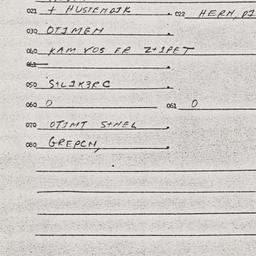 021 + HUSTENDIK 022 HERN, DI
030 OTIMEN
040 KAM VOS ER Z+IPET
050 S+LIK3RC
060 O 061 O
070 OTIMT S+HEL
080 GREPCN,